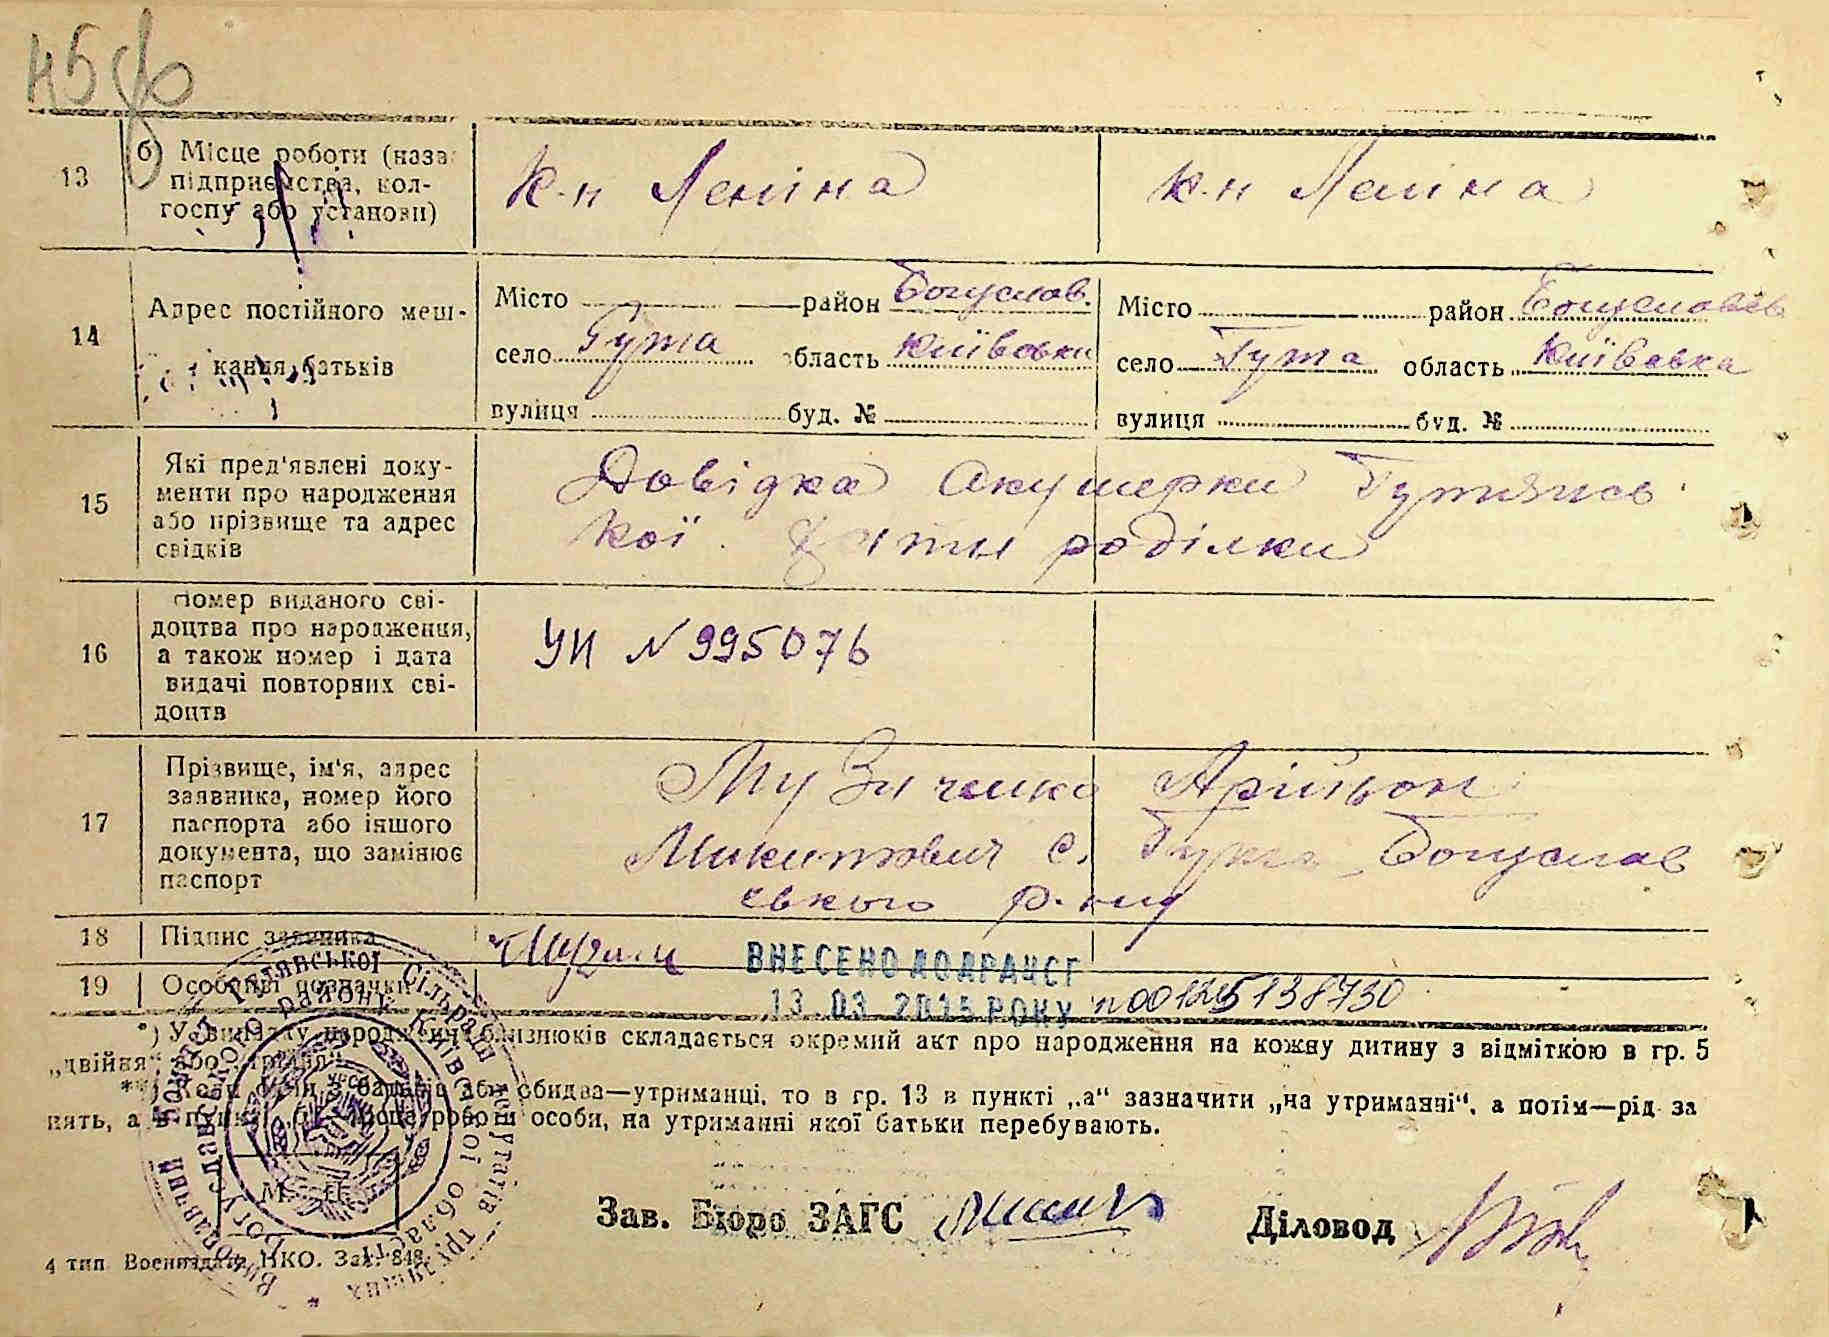 13
б) Місце роботи (назва
підприємства, кол-
госпу або установи)
К-п Леніна
к-п Леніна
14
Адрес постійного меш-
кання батьків
Місто район Богуслав.
село Гута область Київська
вулиця буд. №
Місто район Богуславсь
село Гута область Київська
вулиця буд. №
15
Які пред'явлені доку-
менти про народження
або прізвище та адрес
свідків
Довідка акушерки Гутянсь
кої хати роділки
16
Номер виданого сві-
доцтва про народження,
а також номер і дата
видачі повторних сві-
доцтв
УИ № 995076
17
Прізвище, ім'я, адрес
заявника, номер його
паспорта або іншого
документа, що замінює
паспорт
Музиченко
Микитович с. Гута Богуслав
ського р-ну
18
Підпис заявника
19
Особливі позначки
ВНЕСЕНО ДО ДРАЦСГ
13 03 2015 РОКУ
*) У випадку народження близнюків складається окремий акт про народження на кожну дитину з відміткою в гр. 5
„двійня“ або „трійня“.
обидва—утриманці, то в гр. 13 в пункті „а“ зазначити „на утриманні“, а потім—рід за
нять, а в пункті „б“ місце роботи особи, на утриманні якої батьки перебувають.
М. П.
Зав. Бюро ЗАГС
Діловод
4 тип Воениздата НКО. Зак. 848.
Виконавчий Комітет Гутянської Сільради депутатів трудящих
Богуславського району Київської області
УРСР